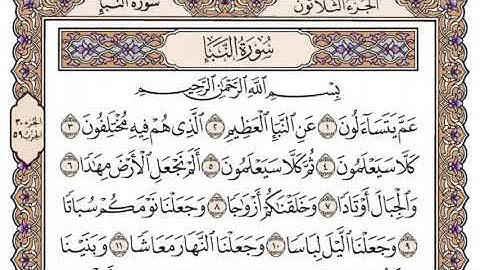 الجزء الثلاثون
سورة النبإ
سُورَةُ النَّبَإِ
بِسْمِ ٱللَّهِ ٱلرَّحْمَٰنِ ٱلرَّحِيمِ
عَمَّ يَتَسَآءَلُونَ ١ عَنِ ٱلنَّبَإِ ٱلْعَظِيمِ ٢ ٱلَّذِى هُمْ فِيهِ مُخْتَلِفُونَ ٣
كَلَّا سَيَعْلَمُونَ ٤ ثُمَّ كَلَّا سَيَعْلَمُونَ ٥ أَلَمْ نَجْعَلِ ٱلْأَرْضَ مِهَٰدًا ٦
وَٱلْجِبَالَ أَوْتَادًا ٧ وَخَلَقْنَٰكُمْ أَزْوَٰجًا ٨ وَجَعَلْنَا نَوْمَكُمْ سُبَاتًا
٩ وَجَعَلْنَا ٱلَّيْلَ لِبَاسًا ١٠ وَجَعَلْنَا ٱلنَّهَارَ مَعَاشًا ١١ وَبَنَيْنَا
الجزء ٣٠
الحزب ٥٩